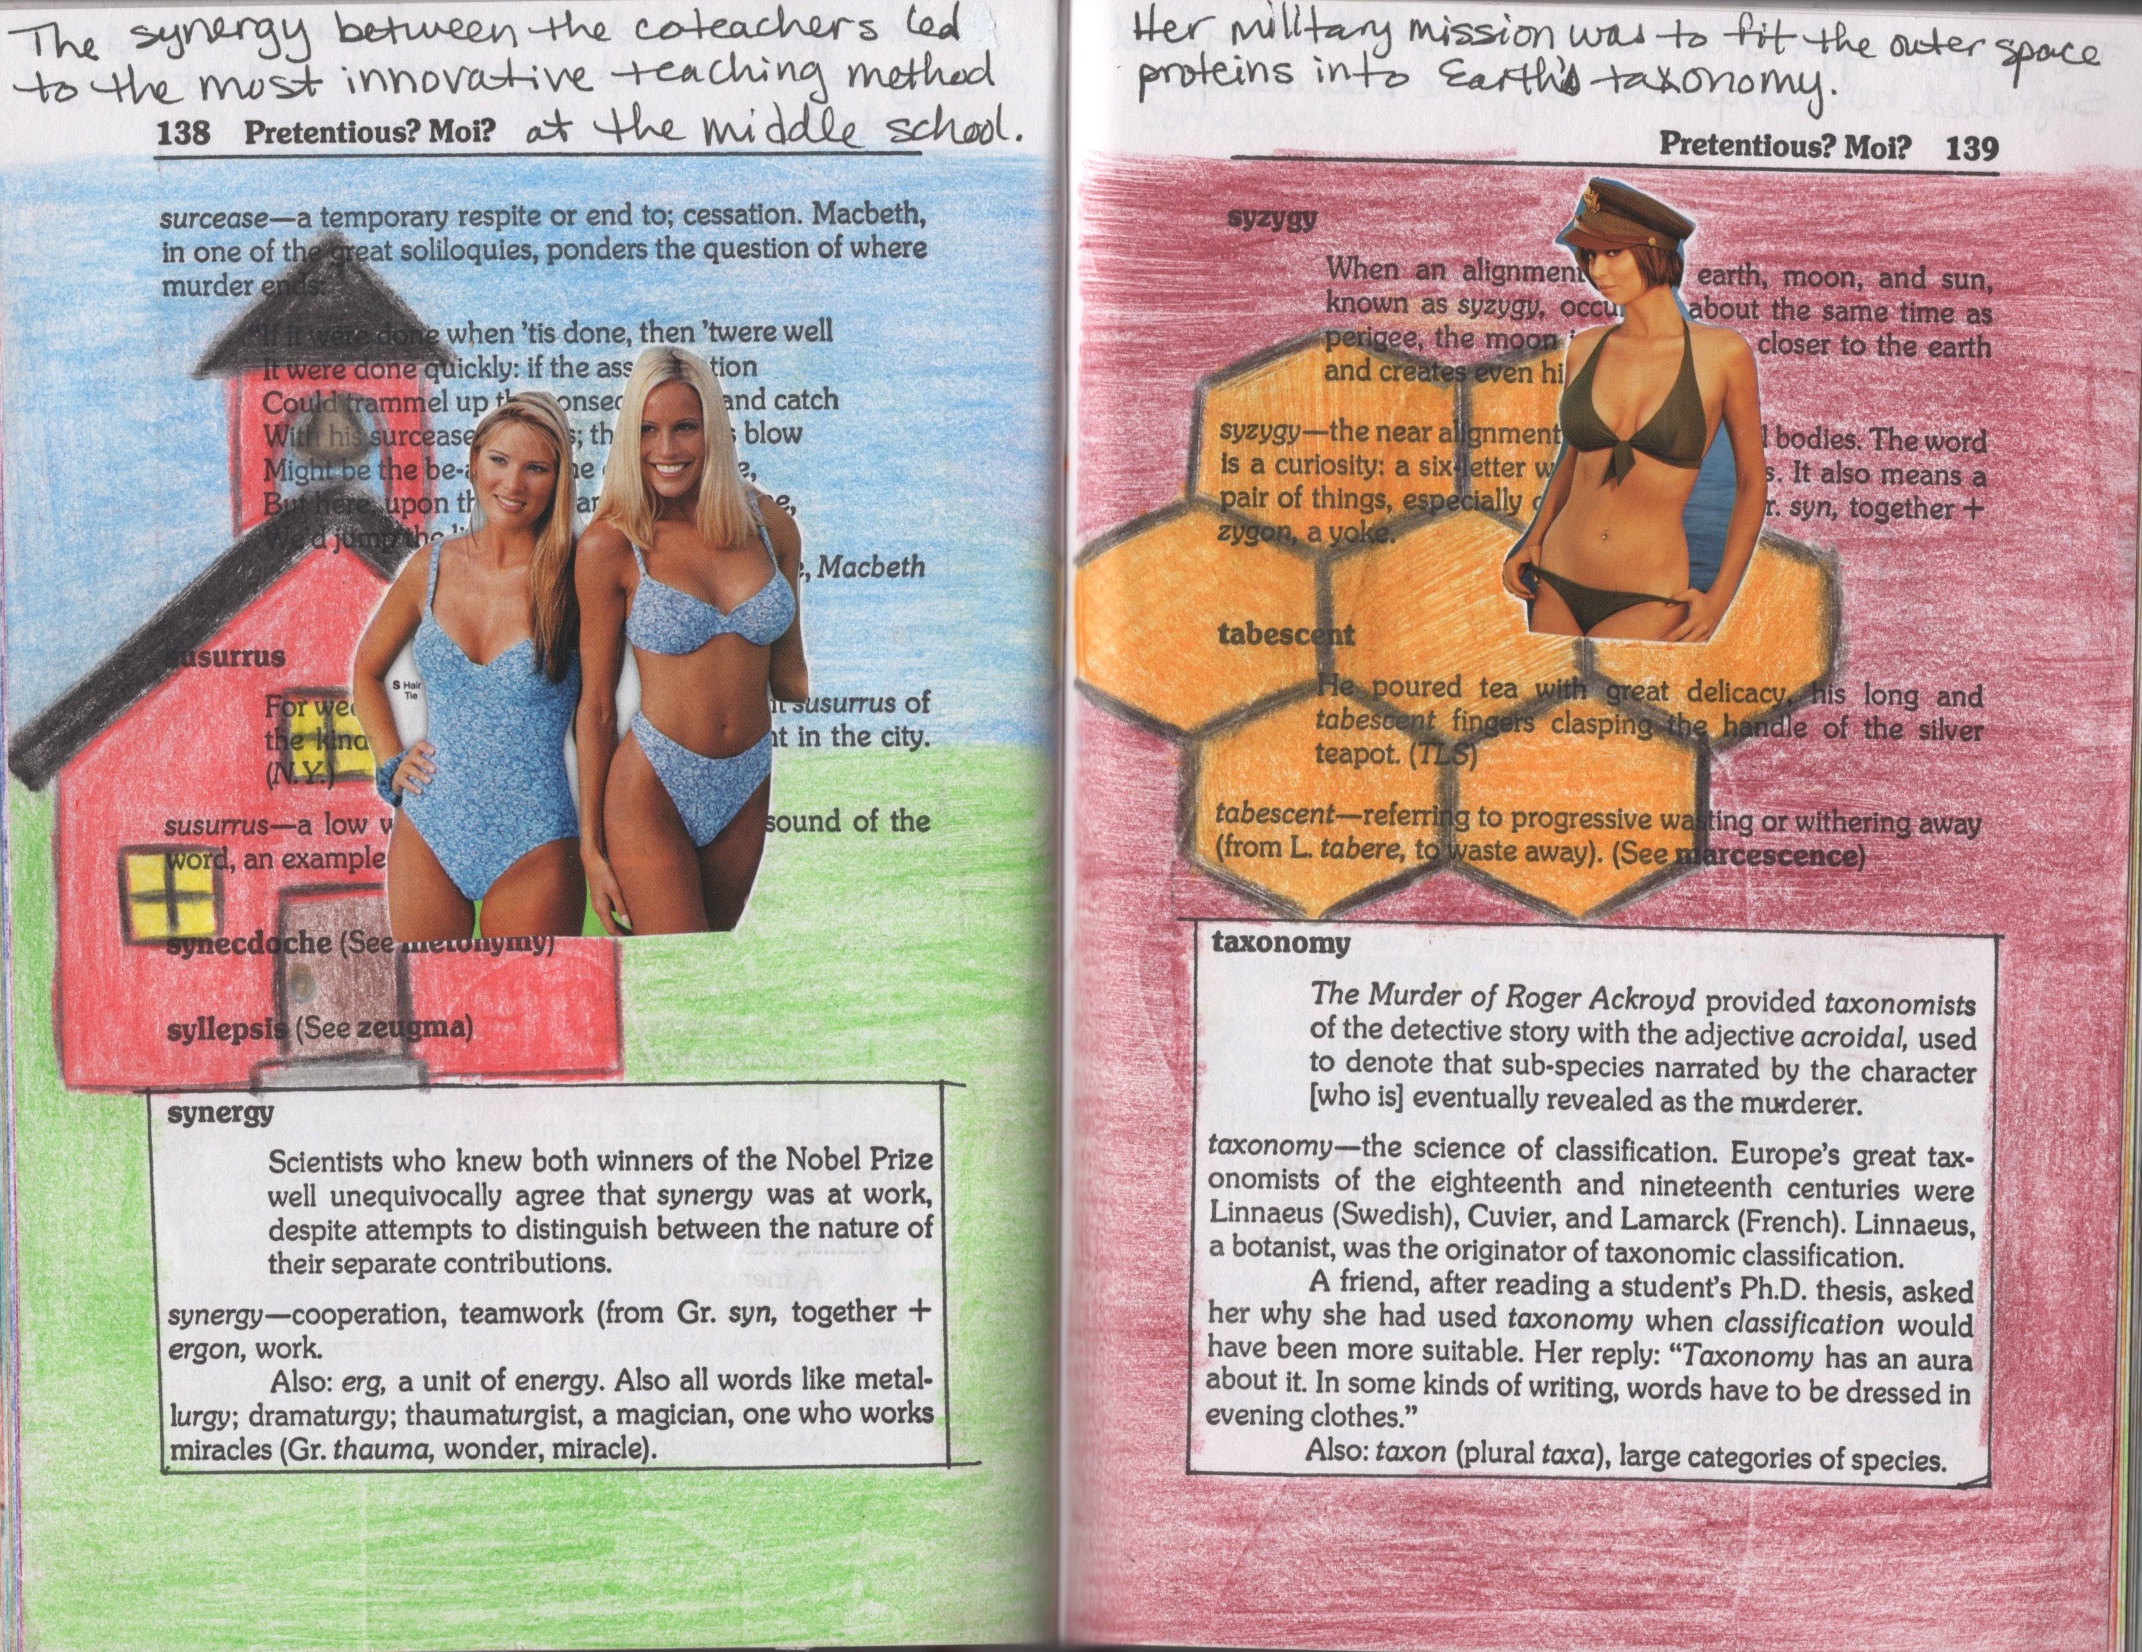 The synergy between the coteachers led
to the most innovative teaching method
at the middle school.
138 Pretentious? Moi?
surcease—a temporary respite or end to; cessation. Macbeth,
in one of the great soliloquies, ponders the question of where
murder ends:
"If it were done when 'tis done, then 'twere well
It were done quickly: if the ass tion
Could trammel up and catch
With his surcease blow
Might be the
But here, upon
We'd jump the
, Macbeth
susurrus
For susurrus of
the in the city.
(N.Y.)
susurrus—a low sound of the
word, an example
synecdoche (See metonymy)
syllepsis (See zeugma)
S Hair
Tie
synergy
Scientists who knew both winners of the Nobel Prize
well unequivocally agree that synergy was at work,
despite attempts to distinguish between the nature of
their separate contributions.
synergy—cooperation, teamwork (from Gr. syn, together +
ergon, work.
Also: erg, a unit of energy. Also all words like metal-
lurgy; dramaturgy; thaumaturgist, a magician, one who works
miracles (Gr. thauma, wonder, miracle).
Her military mission was to fit the outer space
proteins into Earth's taxonomy.
Pretentious? Moi? 139
syzygy
When an alignment earth, moon, and sun,
known as syzygy, about the same time as
perigee, the moon closer to the earth
and creates even
syzygy—the near alignment bodies. The word
is a curiosity: a six-letter . It also means a
pair of things, especially syn, together +
zygon, a yoke.
tabescent
He poured tea with great delicacy, his long and
tabescent fingers clasping the handle of the silver
teapot. (TLS)
tabescent—referring to progressive wasting or withering away
(from L. tabere, to waste away). (See marcescence)
taxonomy
The Murder of Roger Ackroyd provided taxonomists
of the detective story with the adjective acroidal, used
to denote that sub-species narrated by the character
[who is] eventually revealed as the murderer.
taxonomy—the science of classification. Europe's great tax-
onomists of the eighteenth and nineteenth centuries were
Linnaeus (Swedish), Cuvier, and Lamarck (French). Linnaeus,
a botanist, was the originator of taxonomic classification.
A friend, after reading a student's Ph.D. thesis, asked
her why she had used taxonomy when classification would
have been more suitable. Her reply: "Taxonomy has an aura
about it. In some kinds of writing, words have to be dressed in
evening clothes."
Also: taxon (plural taxa), large categories of species.